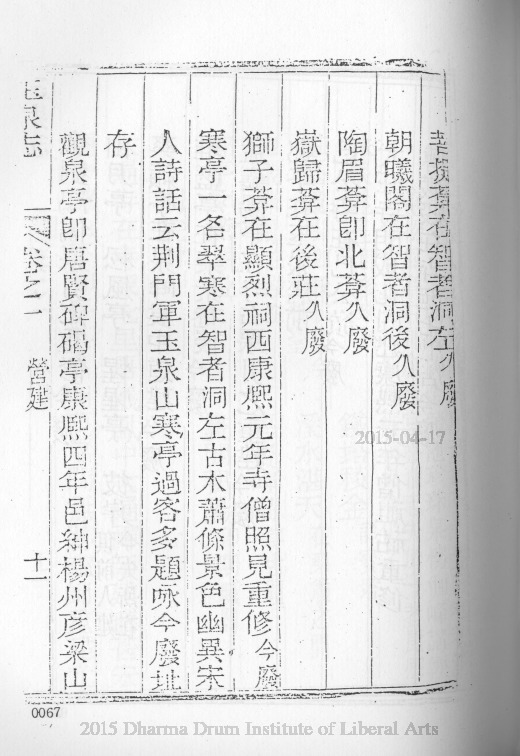 菩提菴在智者洞左久廢
朝曦閣在智者洞後久廢
陶眉菴卽北菴久廢
嶽歸菴在後莊久廢
獅子菴在顯烈祠西康熙元年寺僧照見重修今廢
寒亭一名翠寒在智者洞左古木蕭條景色幽異宋
人詩話云荆門軍玉泉山寒亭過客多題咏今廢址
存
觀泉亭卽唐賢碑碣亭康熙四年邑紳楊州彥梁山
玉泉志 卷之二 營建 十一
2015-04-17
0067
2015 Dharma Drum Institute of Liberal Arts